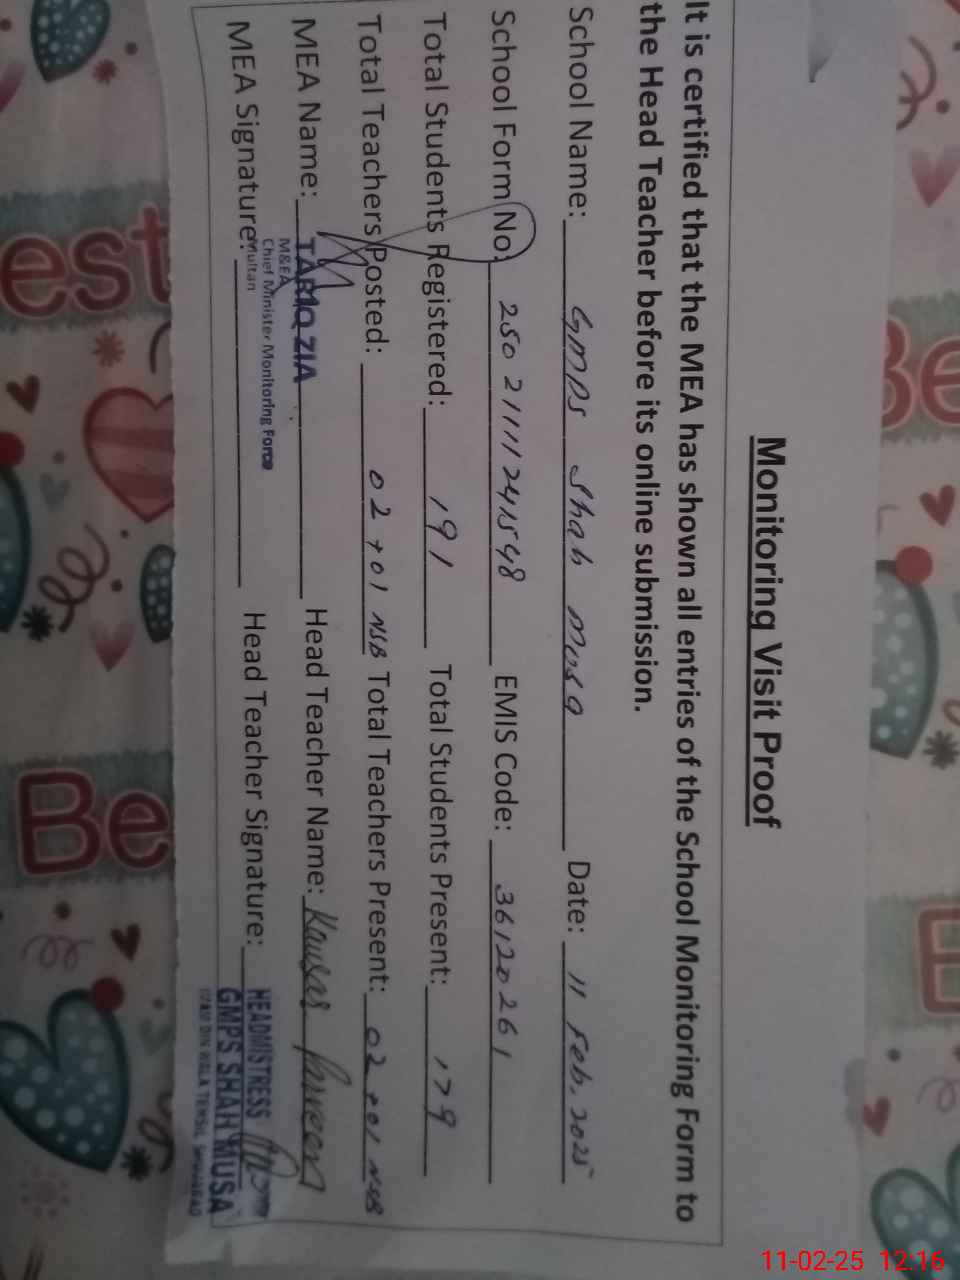 Monitoring Visit Proof
It is certified that the MEA has shown all entries of the School Monitoring Form to
the Head Teacher before its online submission.
School Name: GMPS Shah Mosa Date: 11 Feb, 2025
School Form No: 250 211112 41548 EMIS Code: 36120261
Total Students Registered: 191 Total Students Present: 179
Total Teachers Posted: 02 + 01 NSB Total Teachers Present: 02 + 01 NSB
MEA Name: TARIQ ZIA Head Teacher Name: Kausar Parveen
M&EA
Chief Minister Monitoring Force
Multan
MEA Signature: Head Teacher Signature:
HEADMISTRESS
GMPS SHAH MUSA
DIN WALA TEHSIL SHUJABAD
est
Be
Be
11-02-25 12:16